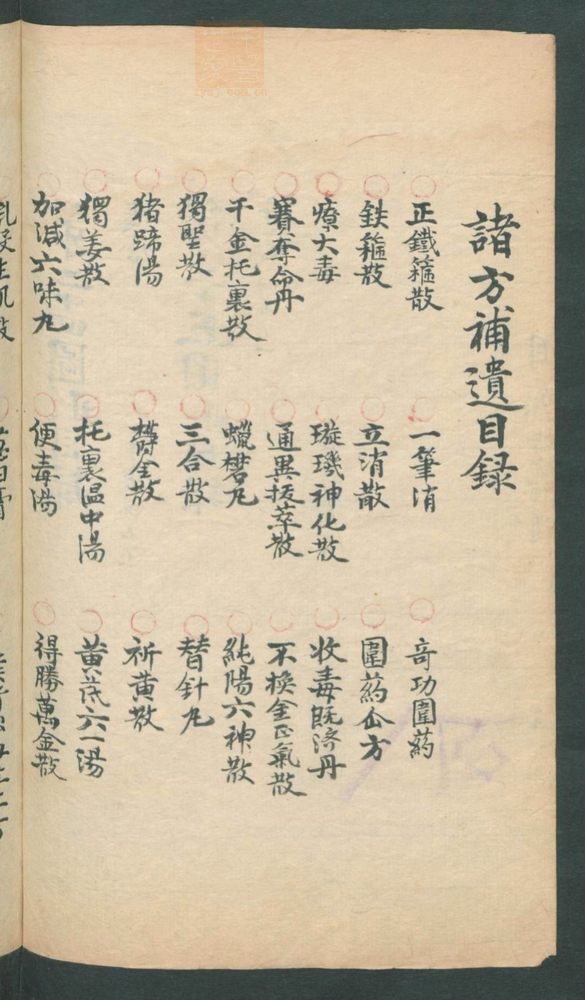 諸方補遺目録
正鐵箍散 一筆消 奇功圍葯
鉄箍散 立消散 圍葯仚方
療大毒 璇璣神化散 收毒既济丹
賽奪命丹 通異拔萃散 不換金正氣散
千金托裏散 蠟礬丸 純陽六神散
獨聖散 三合散 替針丸
猪蹄湯 欝金散 祈黄散
獨姜散 托裏温中湯 黄芪六一湯
加减六味丸 便毒湯 得勝萬金散